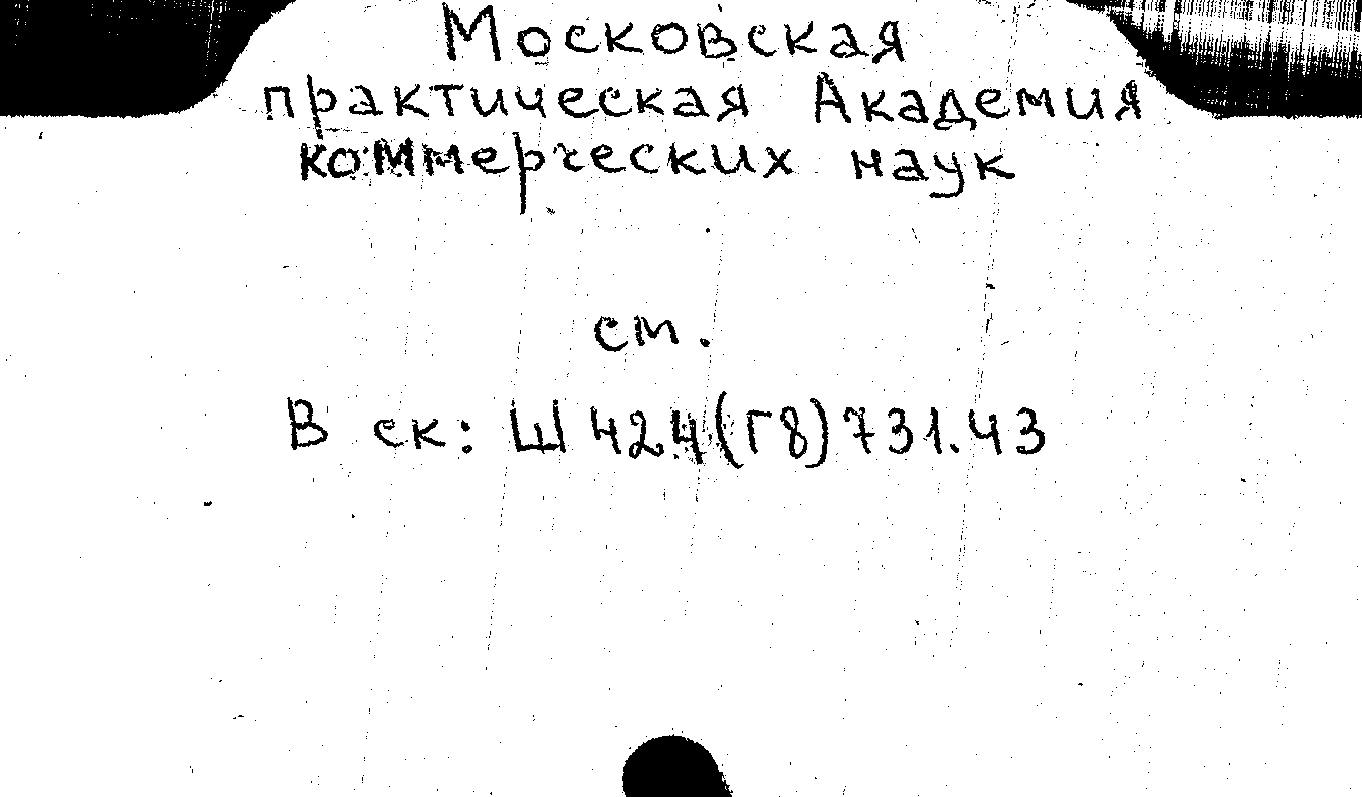 Московская
практическая Академия
коммерческих наук
см.
В ск: Ш 424(Г8)731.43